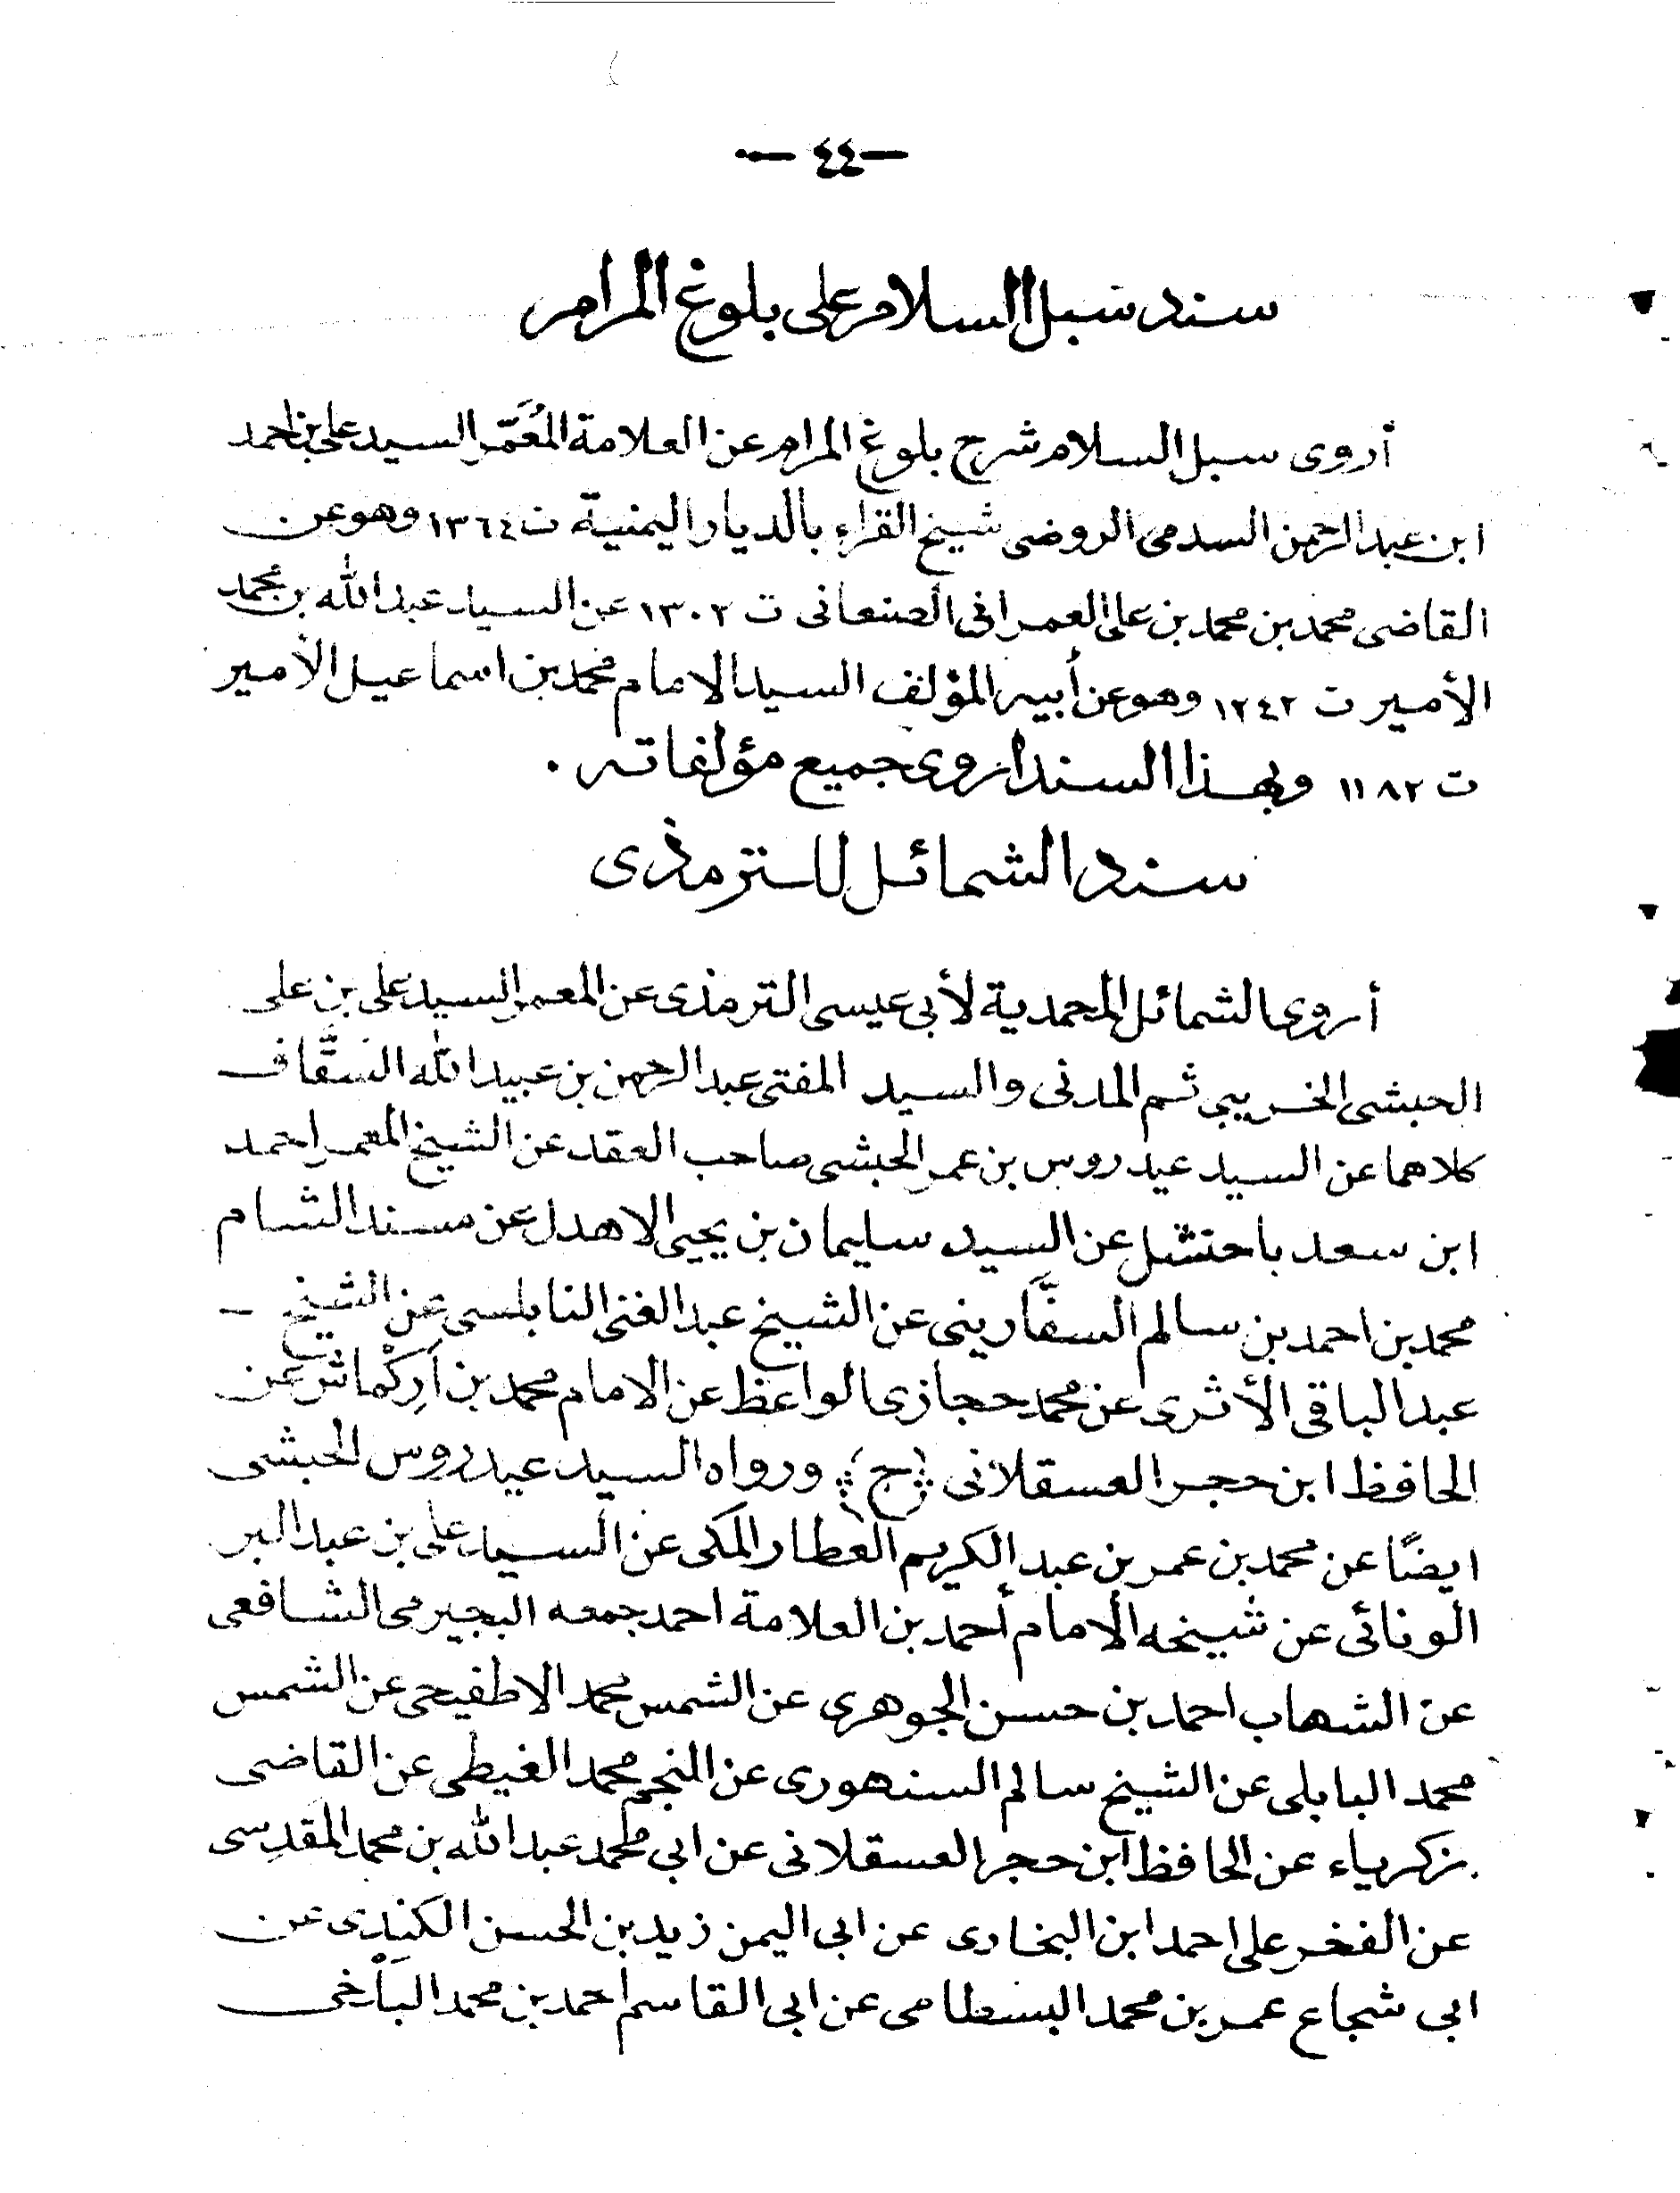 — ٤٤ —
سند سبل السلام على بلوغ المرام
أروى سبل السلام شرح بلوغ المرام عن العلامة المُعَمَّر السيد على بن احمد
ابن عبد الرحمن السدمى الروضى شيخ القراء بالديار اليمنية ت ١٣٦٤ وهو عن
القاضى محمد بن محمد بن على العمرانى الصنعانى ت ١٣٠٢ عن السيد عبد الله بن محمد
الأمير ت ١٢٤٢ وهو عن أبيه المؤلف السيد الامام محمد بن اسماعيل الأمير
ت ١١٨٢ وبهذا السند اروى جميع مؤلفاته .
سند الشمائل للترمذى
أروى الشمائل المحمدية لأبى عيسى الترمذى عن المعمر السيد على بن على
الحبشى الخريبى ثم المدنى والسيد المفتى عبد الرحمن بن عبيد الله السَقَّاف
كلاهما عن السيد عيدروس بن عمر الحبشى صاحب العقد عن الشيخ المعمر احمد
ابن سعد باحنشل عن السيد سليمان بن يحيى الاهدل عن مسند الشام
محمد بن احمد بن سالم السفَّارينى عن الشيخ عبد الغنى النابلسى عن الشيخ –
عبد الباقى الأثرى عن محمد حجازى الواعظ عن الامام محمد بن اَرِكْماش عن
الحافظ ابن حجر العسقلانى (ج) ورواه السيد عيدروس الحبشى
ايضًا عن محمد بن عمر بن عبد الكريم العطار المكى عن السيد على بن عبد البر
الونائى عن شيخه الامام أحمد بن العلامة احمد جمعه البجيرمى الشافعى
عن الشهاب احمد بن حسن الجوهرى عن الشمس محمد الاطفيحى عن الشمس
محمد البابلى عن الشيخ سالم السنهورى عن النجم محمد الغيطى عن القاضى
زكرياء عن الحافظ ابن حجر العسقلانى عن ابى محمد عبد الله بن محمد المقدِسى
عن الفخر على احمد ابن البخارى عن ابى اليمن زيد بن الحسن الكِنْدِى عن
ابى شجاع عمر بن محمد البسطامى عن ابى القاسم احمد بن محمد البَلْخى